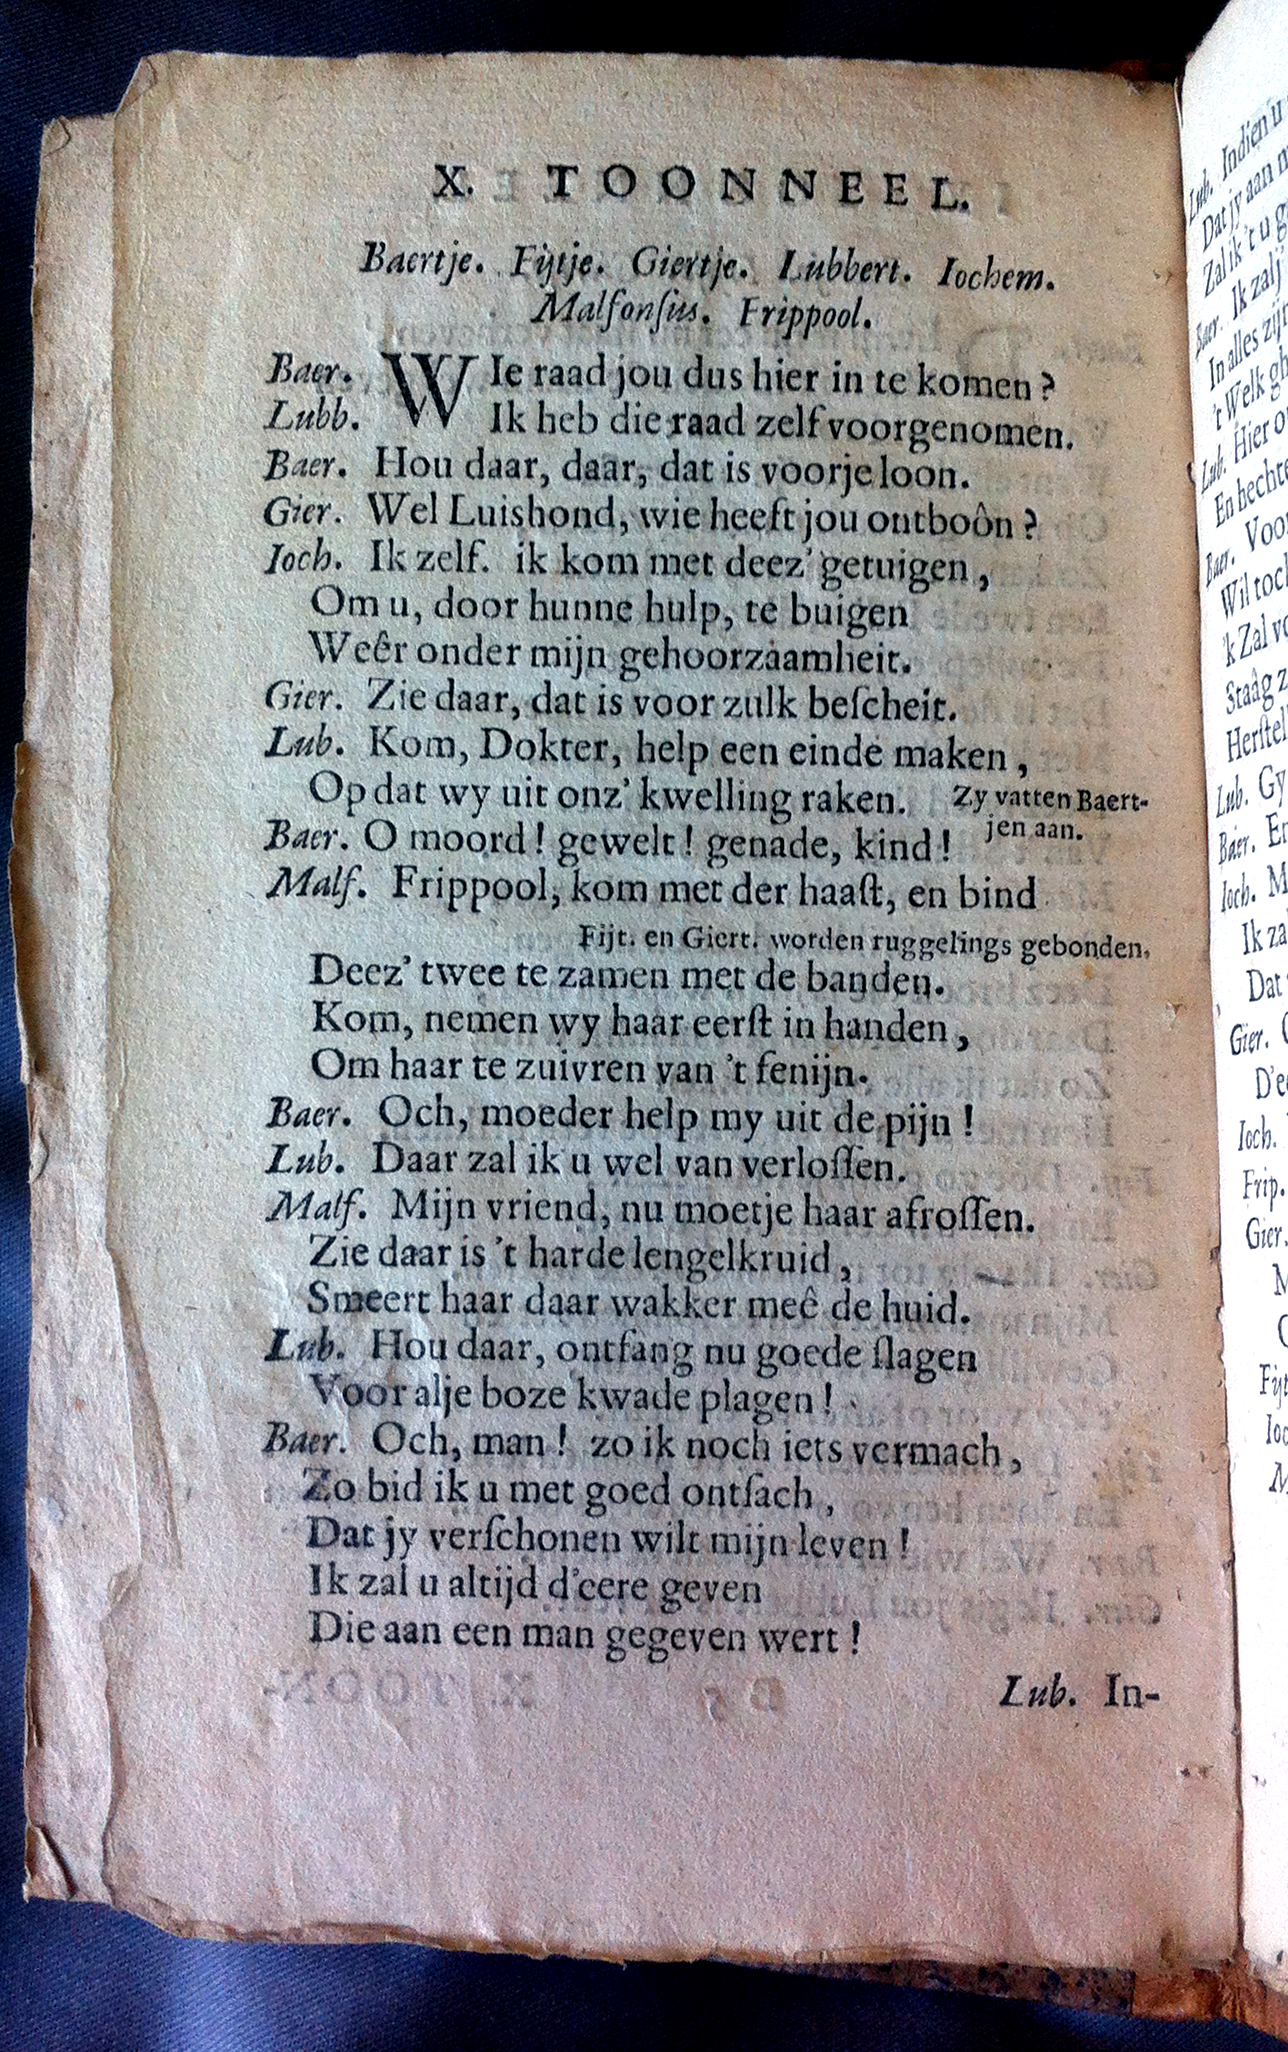 X. TOONNEEL.
Baertje. Fijtje. Giertje. Lubbert. Iochem.
Malfonſius. Frippool.
Baer. WIe raad jou dus hier in te komen?
Lubb. Ik heb die raad zelf voorgenomen.
Baer. Hou daar, daar, dat is voorje loon.
Gier. Wel Luishond, wie heeft jou ontboôn?
Ioch. Ik zelf. ik kom met deez' getuigen,
Om u, door hunne hulp, te buigen
Weêr onder mijn gehoorzaamheit.
Gier. Zie daar, dat is voor zulk beſcheit.
Lub. Kom, Dokter, help een einde maken,
Opdat wy uit onz' kwelling raken. Zy vatten Baert-
jen aan.
Baer. O moord! gewelt! genade, kind!
Malf. Frippool, kom met der haaſt, en bind
Fijt. en Giert. worden ruggelings gebonden.
Deez' twee te zamen met de banden.
Kom, nemen wy haar eerſt in handen,
Om haar te zuivren van 't fenijn.
Baer. Och, moeder help my uit de pijn!
Lub. Daar zal ik u wel van verloſſen.
Malf. Mijn vriend, nu moetje haar afroſſen.
Zie daar is 't harde lengelkruid,
Smeert haar daar wakker meê de huid.
Lub. Hou daar, ontfang nu goede ſlagen
Voor alje boze kwade plagen!
Baer. Och, man! zo ik noch iets vermach,
Zo bid ik u met goed ontſach,
Dat jy verſchonen wilt mijn leven!
Ik zal u altijd d'eere geven
Die aan een man gegeven wert!
Lub. In-
Lub. Indien u
Dat jy aan
Zal ik 't u
Baer. Ik zal
In alles
't Welk
Lub. Hier
En
Baer.
Wil
'k Zal
Staâg
Lub. Gy
Baer.
Ioch.
Ik
Dat
Gier.
Ioch.
Frip.
Gier.